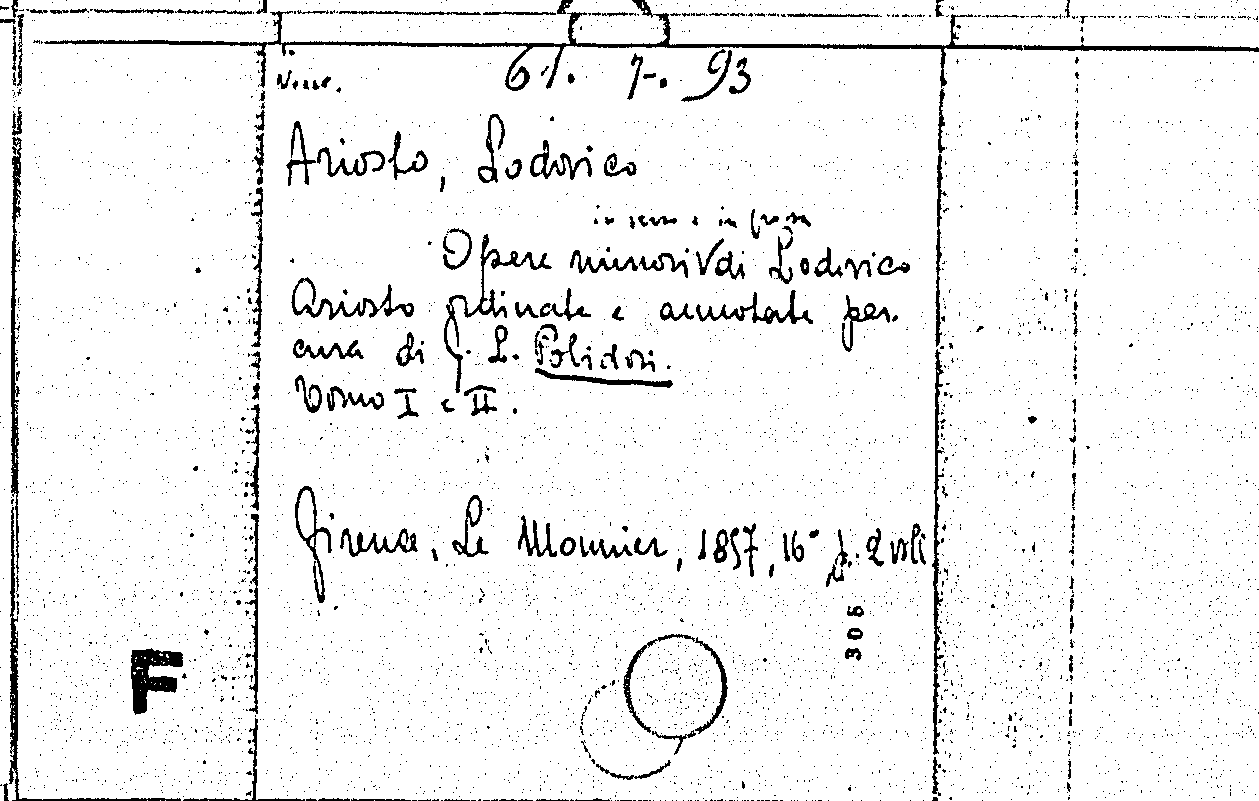 61. 7. 93
Ariosto, Lodovico
in verso e in prosa
Opere minori V di Lodovico
Ariosto ordinate e annotate per
cura di F. L. Polidori.
Tomo I e II.
Firenze, Le Monnier, 1857, 16° p. 2 voll
306
F